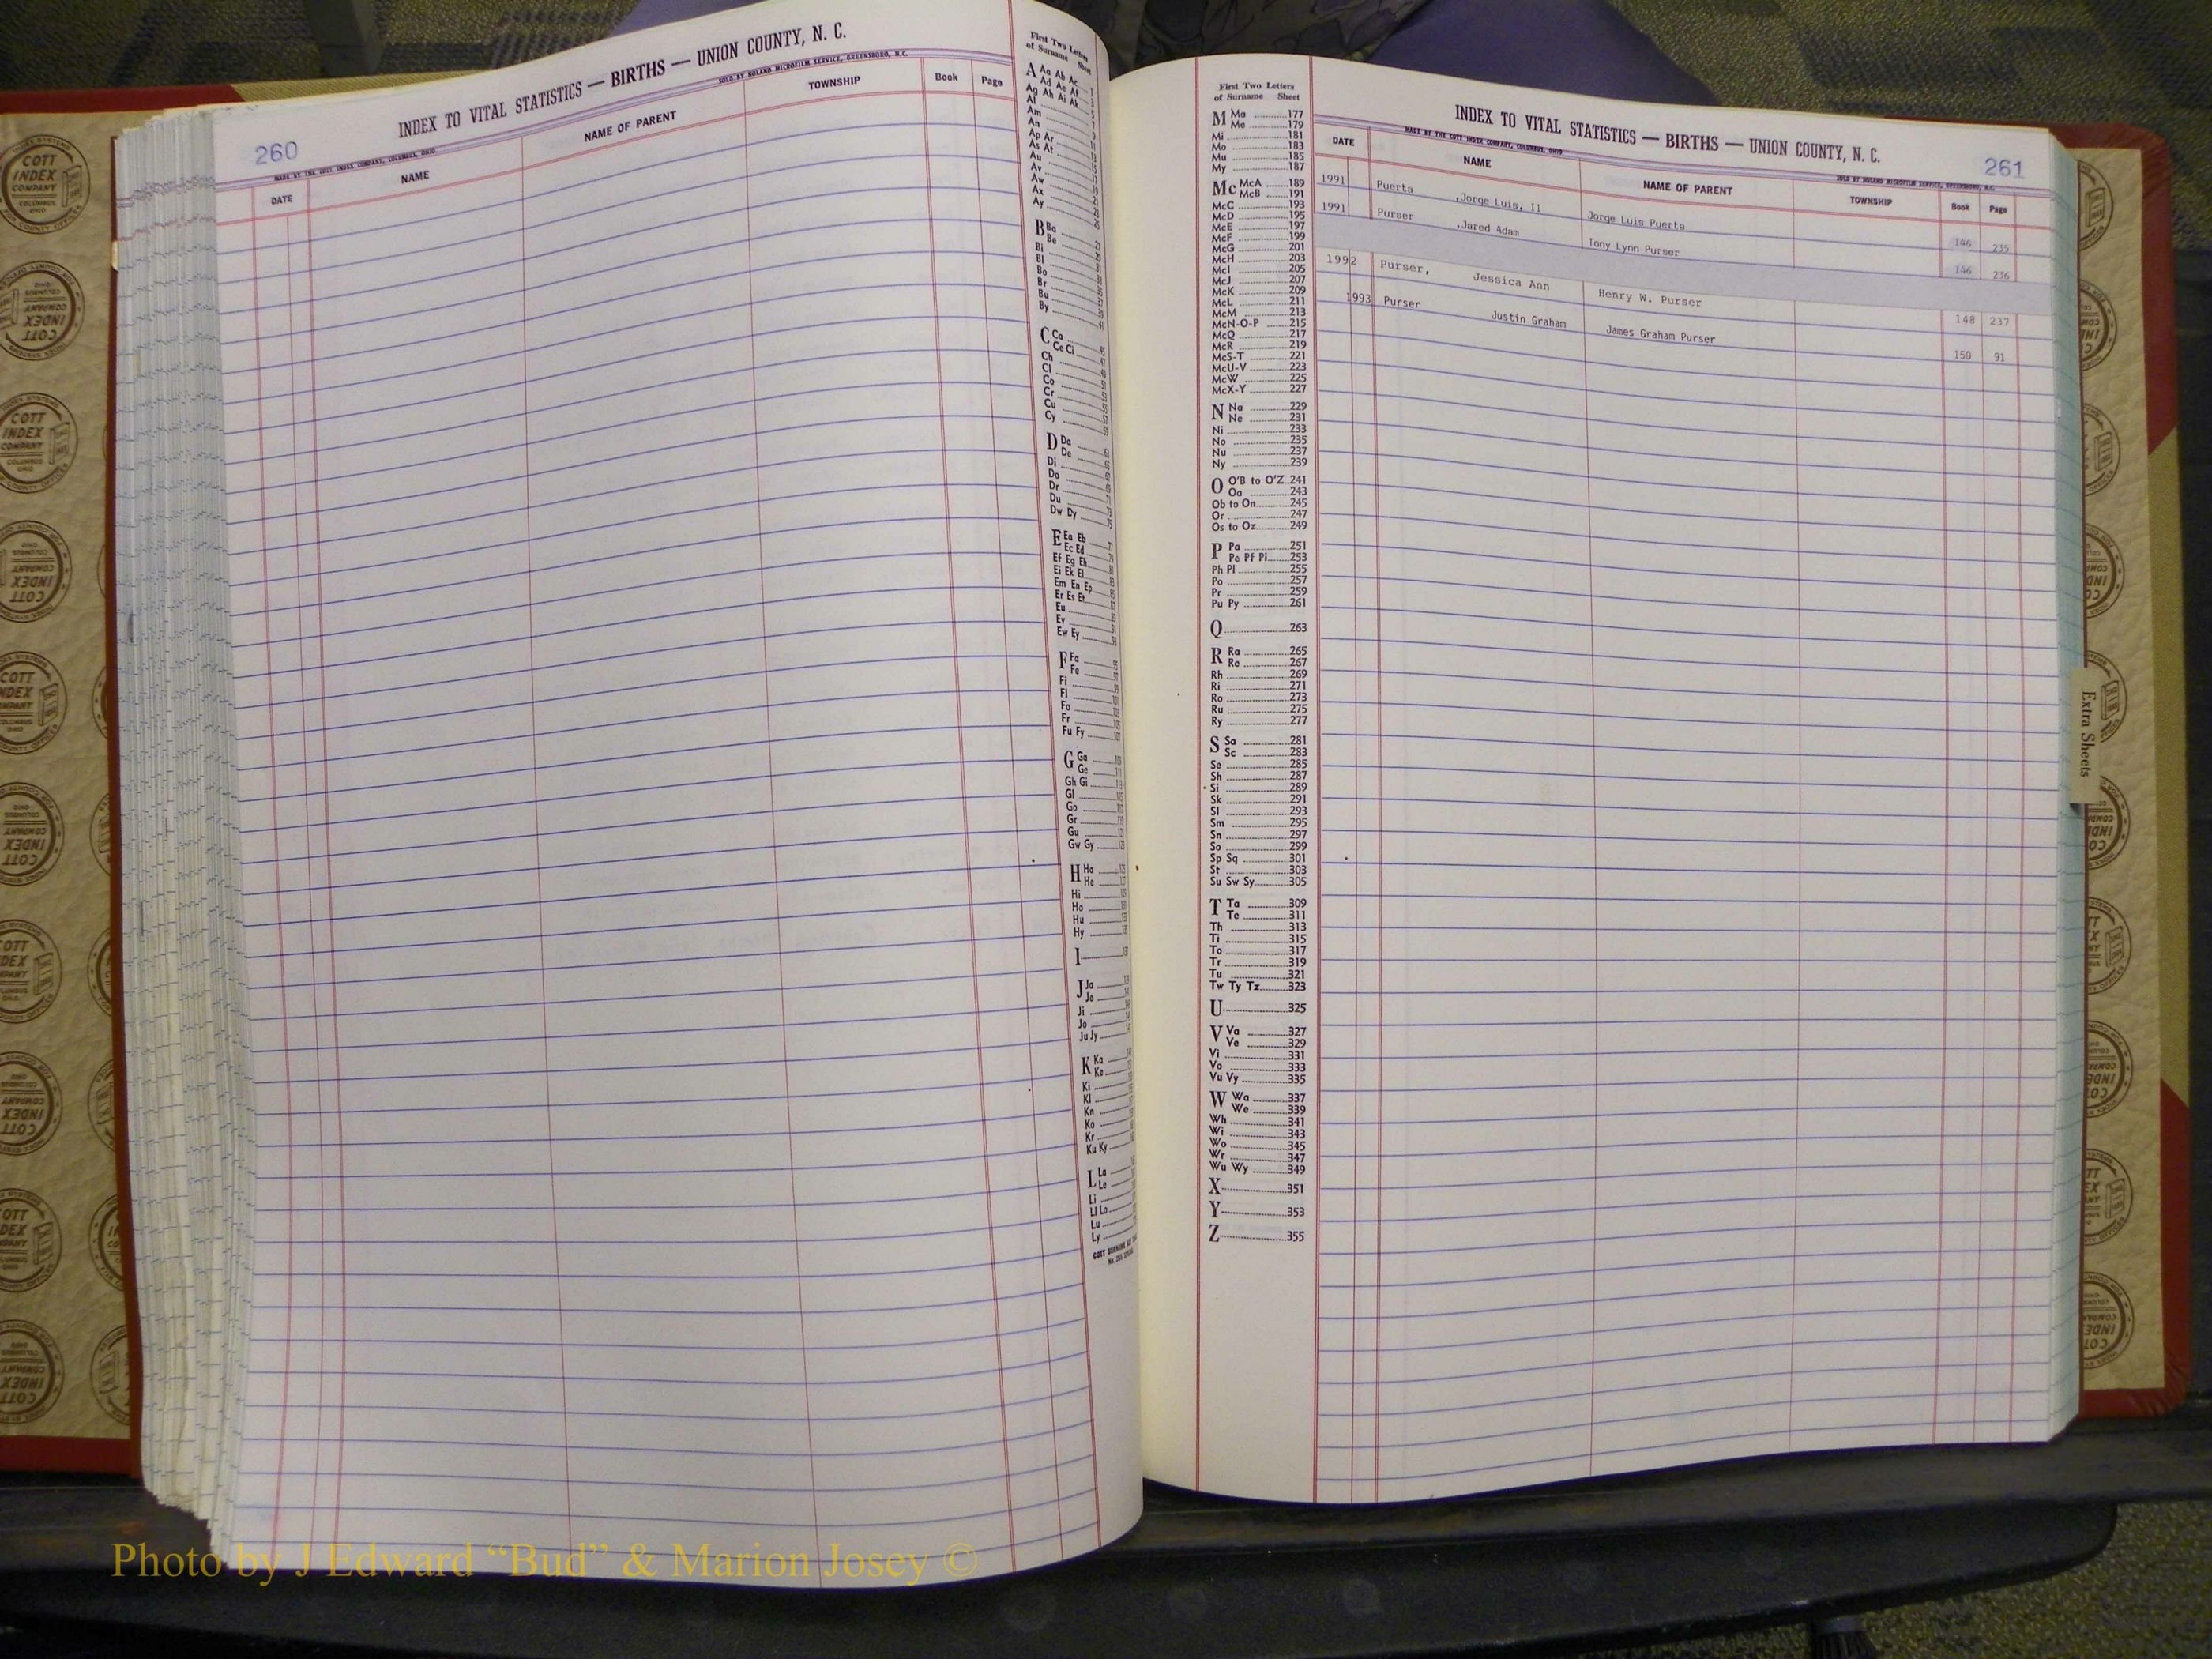 260
INDEX TO VITAL STATISTICS — BIRTHS — UNION COUNTY, N. C.
MADE BY THE COTT INDEX COMPANY, COLUMBUS, OHIO
SOLD BY NOLAND MICROFILM SERVICE, GREENSBORO, N.C.
DATE NAME NAME OF PARENT TOWNSHIP Book Page
First Two Letters
of Surname Sheet
A Aa Ab Ac
Ad Ae Af
Ag Ah Ai Ak
Al
Am
An
Ap Ar
As At
Au
Av
Aw
Ax
Ay
B Ba
Be
Bi
Bl
Bo
Br
Bu
By
C Ca
Ce Ci
Ch
Cl
Co
Cr
Cu
Cy
D Da
De
Di
Do
Dr
Du
Dw Dy
E Ea Eb
Ec Ed
Ef Eg Eh
Ei Ek El
Em En Ep
Er Es Et
Eu
Ev
Ew Ey
F Fa
Fe
Fi
Fl
Fo
Fr
Fu Fy
G Ga
Ge
Gh Gi
Gl
Go
Gr
Gu
Gw Gy
H Ha
He
Hi
Ho
Hu
Hy
I
J Ja
Je
Ji
Jo
Ju Jy
K Ka
Ke
Ki
Kl
Kn
Ko
Kr
Ku Ky
L La
Le
Li
Ll Lo
Lu
Ly
First Two Letters
of Surname Sheet
M Ma 177
Me 179
Mi 181
Mo 183
Mu 185
My 187
Mc McA 189
McB 191
McC 193
McD 195
McE 197
McF 199
McG 201
McH 203
McI 205
McJ 207
McK 209
McL 211
McM 213
McN-O-P 215
McQ 217
McR 219
McS-T 221
McU-V 223
McW 225
McX-Y 227
N Na 229
Ne 231
Ni 233
No 235
Nu 237
Ny 239
O O'B to O'Z 241
Oa 243
Ob to On 245
Or 247
Os to Oz 249
P Pa 251
Pe Pf Pi 253
Ph Pl 255
Po 257
Pr 259
Pu Py 261
Q 263
R Ra 265
Re 267
Rh 269
Ri 271
Ro 273
Ru 275
Ry 277
S Sa 281
Sc 283
Se 285
Sh 287
Si 289
Sk 291
Sl 293
Sm 295
Sn 297
So 299
Sp Sq 301
St 303
Su Sw Sy 305
T Ta 309
Te 311
Th 313
Ti 315
To 317
Tr 319
Tu 321
Tw Ty Tz 323
U 325
V Va 327
Ve 329
Vi 331
Vo 333
Vu Vy 335
W Wa 337
We 339
Wh 341
Wi 343
Wo 345
Wr 347
Wu Wy 349
X 351
Y 353
Z 355
INDEX TO VITAL STATISTICS — BIRTHS — UNION COUNTY, N. C.
261
MADE BY THE COTT INDEX COMPANY, COLUMBUS, OHIO
SOLD BY NOLAND MICROFILM SERVICE, GREENSBORO, N.C.
DATE NAME NAME OF PARENT TOWNSHIP Book Page
1991 Puerta ,Jorge Luis, II Jorge Luis Puerta 146 235
1991 Purser ,Jared Adam Tony Lynn Purser 146 236
1992 Purser, Jessica Ann Henry W. Purser 148 237
1993 Purser Justin Graham James Graham Purser 150 91
Extra Sheets
COTT INDEX COMPANY COLUMBUS OHIO
Photo by J Edward “Bud” & Marion Josey ©